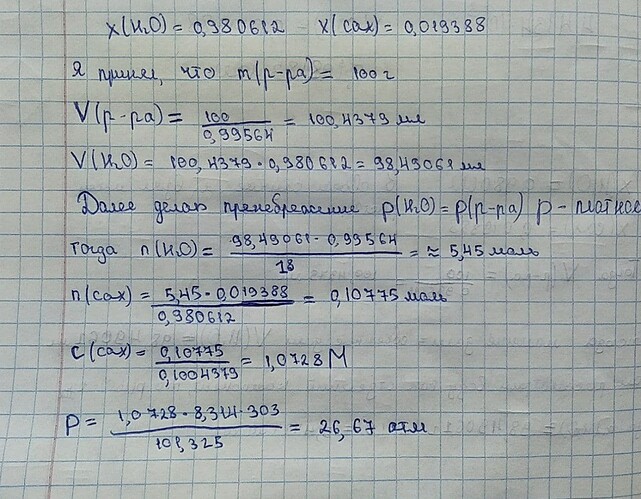 x(H₂O) = 0,980612   x(сах) = 0,019388
Я принял, что m(р-ра) = 100 г
V(р-ра) = 100/0,99564 = 100,4379 мл
V(H₂O) = 100,4379 · 0,980612 = 98,49061 мл
Далее делаю пренебрежение ρ(H₂O) = ρ(р-ра) ρ - плотнос
тогда n(H₂O) = 98,49061 · 0,99564/18 = ≈ 5,45 моль
n(сах) = 5,45 · 0,019388/0,980612 = 0,10775 моль
C(сах) = 0,10775/0,1004379 = 1,0728 M
P = 1,0728 · 8,314 · 303/101,325 = 26,67 атм